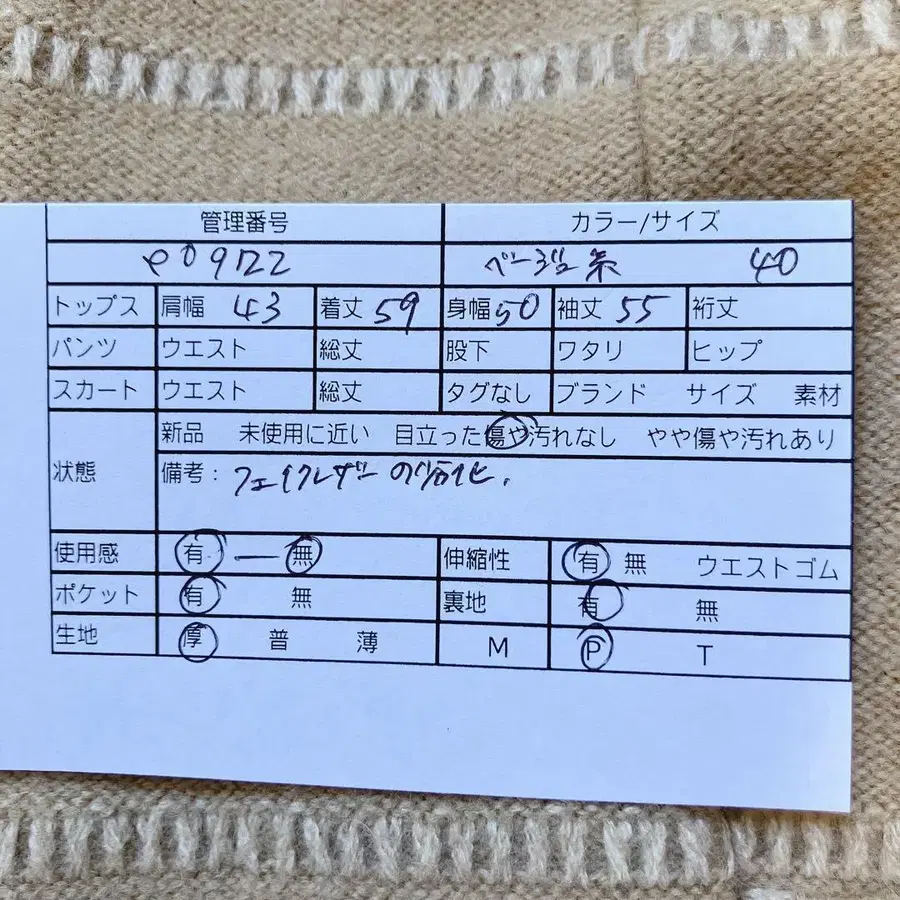 管理番号 カラー/サイズ
ベージュ系 40
トップス 肩幅 43 着丈 59 身幅 50 袖丈 55 裄丈
パンツ ウエスト 総丈 股下 ワタリ ヒップ
スカート ウエスト 総丈 タグなし ブランド サイズ 素材
状態 新品 未使用に近い 目立った傷や汚れなし やや傷や汚れあり
備考: フェイクレザーの劣化.
使用感 有 — 無 伸縮性 有 無 ウエストゴム
ポケット 有 無 裏地 有 無
生地 厚 普 薄 M P T